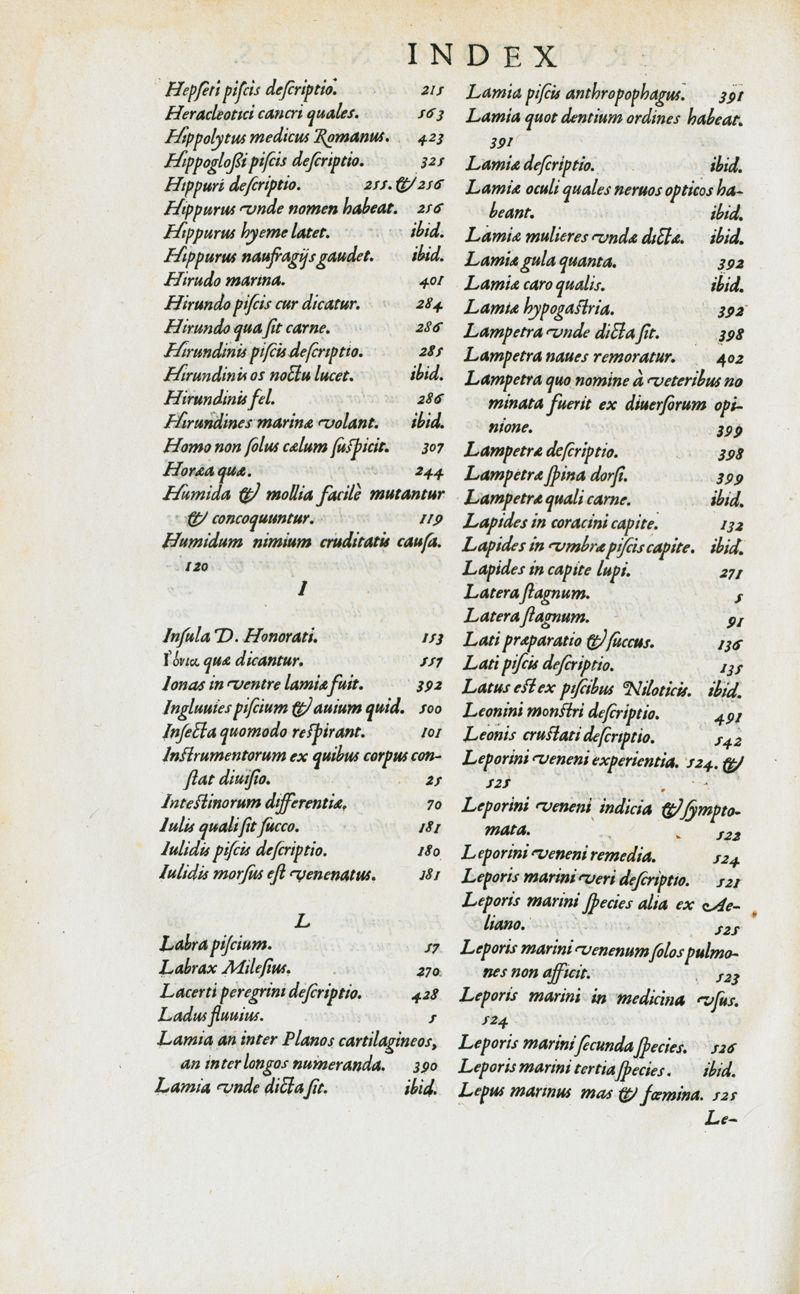 INDEX
Hepseti piſcis deſcriptio. 215
Heracleotici cancri quales. 563
Hippolytus medicus Romanus. 423
Hippogloſſi piſcis deſcriptio. 325
Hippuri deſcriptio. 255. & 256
Hippurus vnde nomen habeat. 256
Hippurus hyeme latet. ibid.
Hippurus naufragijs gaudet. ibid.
Hirudo marina. 401
Hirundo piſcis cur dicatur. 284
Hirundo qua ſit carne. 286
Hirundinis piſcis deſcriptio. 285
Hirundinis os noctu lucet. ibid.
Hirundinis fel. 286
Hirundines marinæ volant. ibid.
Homo non ſolus cælum ſuſpicit. 307
Horæa quæ. 244
Humida & mollia facilè mutantur
& concoquuntur. 119
Humidum nimium cruditatis cauſa.
120
I
Inſula D. Honorati. 153
Ἰόνια quæ dicantur. 557
Ionas in ventre lamiæ fuit. 392
Ingluuies piſcium & auium quid. 500
Inſecta quomodo reſpirant. 101
Inſtrumentorum ex quibus corpus con-
ſtat diuiſio. 25
Inteſtinorum differentiæ. 70
Iulis quali ſit ſucco. 181
Iulidis piſcis deſcriptio. 180
Iulidis morſus eſt venenatus. 181
L
Labra piſcium. 57
Labrax Mileſius. 270
Lacerti peregrini deſcriptio. 428
Ladus fluuius. 5
Lamia an inter Planos cartilagineos,
an inter longos numeranda. 390
Lamia vnde dicta ſit. ibid.
Lamia piſcis anthropophagus. 391
Lamia quot dentium ordines habeat.
391
Lamiæ deſcriptio. ibid.
Lamiæ oculi quales neruos opticos ha-
beant. ibid.
Lamiæ mulieres vndæ dictæ. ibid.
Lamiæ gula quanta. 392
Lamiæ caro qualis. ibid.
Lamiæ hypogaſtria. 392
Lampetra vnde dicta ſit. 398
Lampetra naues remoratur. 402
Lampetra quo nomine à veteribus no
minata fuerit ex diuerſorum opi-
nione. 399
Lampetræ deſcriptio. 398
Lampetræ ſpina dorſi. 399
Lampetræ quali carne. ibid.
Lapides in coracini capite. 132
Lapides in vmbræ piſcis capite. ibid.
Lapides in capite lupi. 271
Latera ſtagnum. 5
Latera ſtagnum. 91
Lati præparatio & ſuccus. 136
Lati piſcis deſcriptio. 135
Latus eſt ex piſcibus Niloticis. ibid.
Leonini monſtri deſcriptio. 491
Leonis cruſtati deſcriptio. 542
Leporini veneni experientia. 524. &
525
Leporini veneni indicia & ſympto-
mata. 522
Leporini veneni remedia. 524
Leporis marini veri deſcriptio. 521
Leporis marini ſpecies alia ex Ae-
liano. 525
Leporis marini venenum ſolos pulmo-
nes non afficit. 523
Leporis marini in medicina vſus.
524
Leporis marini ſecunda ſpecies. 526
Leporis marini tertia ſpecies. ibid.
Lepus marinus mas & fœmina. 525
Le-